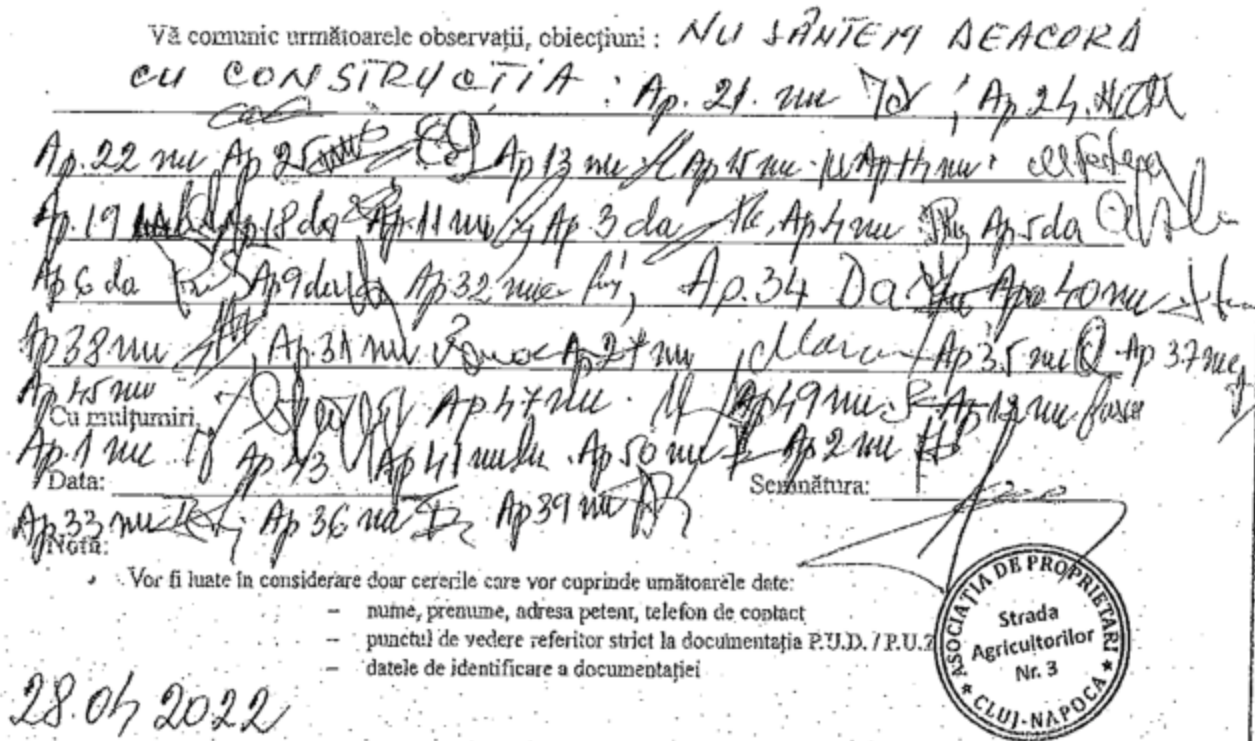 Vă comunic următoarele observații, obiecțiuni : NU SÂNTEM DEACORD
CU CONSTRUCȚIA : Ap. 21. nu ; Ap 24.
Ap. 22 nu Ap 25 Ap 13 nu Ap 15 nu Ap 14 nu
Ap. 19 Ap 18 da Ap. 11 nu Ap 3 da Ap 4 nu Ap 5 da
Ap 6 da Ap 9 da Ap 32 nu Ap. 34 Da Ap 40 nu
Ap 38 nu Ap. 31 nu Ap 27 nu Ap 35 nu Ap 37 nu
Ap 45 nu Ap 47 nu Ap 49 nu Ap 12 nu
Cu mulțumiri,
Ap. 1 nu Ap 43 Ap 41 nu Ap 50 nu Ap 2 nu
Data: Semnătura:
Ap. 33 nu Ap 36 Ap 39 nu
Notă:
Vor fi luate în considerare doar cererile care vor cuprinde următoarele date:
– nume, prenume, adresa petent, telefon de contact
– punctul de vedere referitor strict la documentația P.U.D. / P.U.Z
– datele de identificare a documentației
ASOCIAȚIA DE PROPRIETARI
Strada
Agricultorilor
Nr. 3
* CLUJ-NAPOCA *
28.04 2022